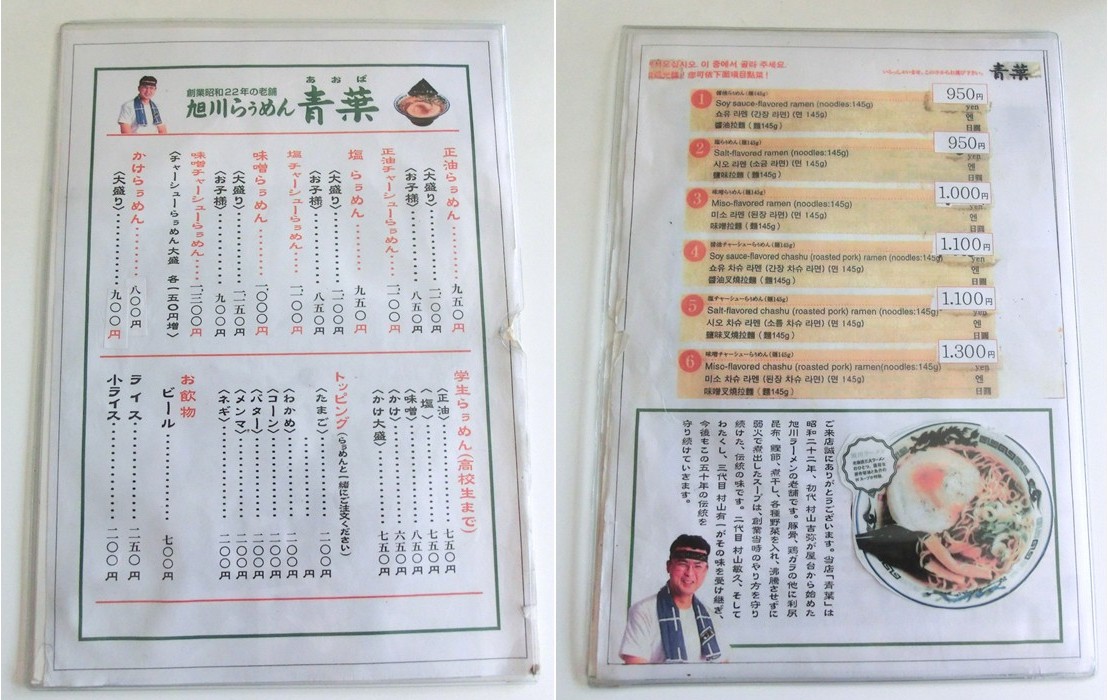 創業昭和22年の老舗
旭川らぅめん
あおば
青葉
正油らぅめん………九五〇円
〈大盛り〉………一、二〇〇円
〈お子様〉………八五〇円
正油チャーシューらぅめん……一、二〇〇円
塩らぅめん………九五〇円
〈大盛り〉………一、二〇〇円
〈お子様〉………八五〇円
塩チャーシューらぅめん……一、二〇〇円
味噌らぅめん………一、〇〇〇円
〈大盛り〉………一、二五〇円
〈お子様〉………九〇〇円
味噌チャーシューらぅめん……一、三〇〇円
〈チャーシューらぅめん大盛 各一五〇円増〉
かけらぅめん………八〇〇円
〈大盛り〉………九〇〇円
学生らぅめん(高校生まで)
〈正油〉………七五〇円
〈塩〉………七五〇円
〈味噌〉………八五〇円
〈かけ〉………六五〇円
〈かけ大盛〉………七五〇円
トッピング(らぅめんと一緒にご注文ください)
〈たまご〉………一〇〇円
円
〈わかめ〉………二〇〇円
〈コーン〉………二〇〇円
〈バター〉………二〇〇円
〈メンマ〉………二〇〇円
〈ネギ〉………二〇〇円
お飲物
ビール………七〇〇円
ライス………二五〇円
小ライス………二〇〇円
이 중에서 골라 주세요.
您可依下面項目點菜！
いらっしゃいませ。この中からお選び下さい。
青葉
1 醤油らぅめん(麺145g)
Soy sauce-flavored ramen (noodles:145g)
쇼유 라멘 (간장 라면) (면 145g)
醬油拉麵 ( 麵145g )
950円
yen
엔
日圓
2 塩らぅめん(麺145g)
Salt-flavored ramen (noodles:145g)
시오 라멘 (소금 라면) (면 145g)
鹽味拉麵 ( 麵145g )
950円
yen
엔
日圓
3 味噌らぅめん(麺145g)
Miso-flavored ramen (noodles:145g)
미소 라멘 (된장 라면) (면 145g)
味噌拉麵 ( 麵145g )
1.000円
yen
엔
日圓
4 醤油チャーシューらぅめん(麺145g)
Soy sauce-flavored chashu (roasted pork) ramen (noodles:145g)
쇼유 차슈 라멘 (간장 차슈 라면) (면 145g)
醬油叉燒拉麵 ( 麵145g )
1.100円
yen
엔
日圓
5 塩チャーシューらぅめん(麺145g)
Salt-flavored chashu (roasted pork) ramen (noodles:145g)
시오 차슈 라멘 (소금 차슈 라면) (면 145g)
鹽味叉燒拉麵 ( 麵145g )
1.100円
엔
日圓
6 味噌チャーシューらぅめん(麺145g)
Miso-flavored chashu (roasted pork) ramen(noodles:145g)
미소 차슈 라멘 (된장 차슈 라면) (면 145g)
味噌叉燒拉麵 ( 麵145g )
1.300円
yen
엔
日圓
ご来店誠にありがとうございます。当店「青葉」は
昭和二十二年、初代 村山吉弥が屋台から始めた
旭川ラーメンの老舗です。豚骨、鶏ガラの他に利尻
昆布、鰹節、煮干し、各種野菜を入れ、沸騰させずに
弱火で煮出したスープは、創業当時のやり方を守り
続けた、伝統の味です。二代目 村山敏久、そして
わたくし、三代目 村山有一がその味を受け継ぎ、
今後もこの五十年の伝統を
守り続けていきます。